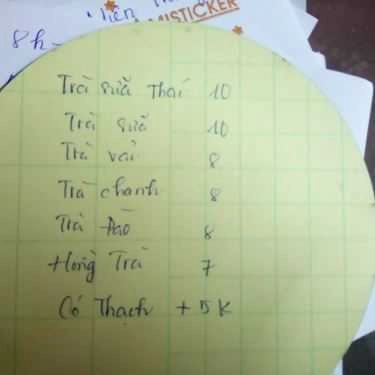 MISTICKER
8h-
Trà sữa Thái 10
Trà sữa 10
Trà vải 8
Trà chanh 8
Trà Đào 8
Hồng Trà 7
Có Thạch + 5K